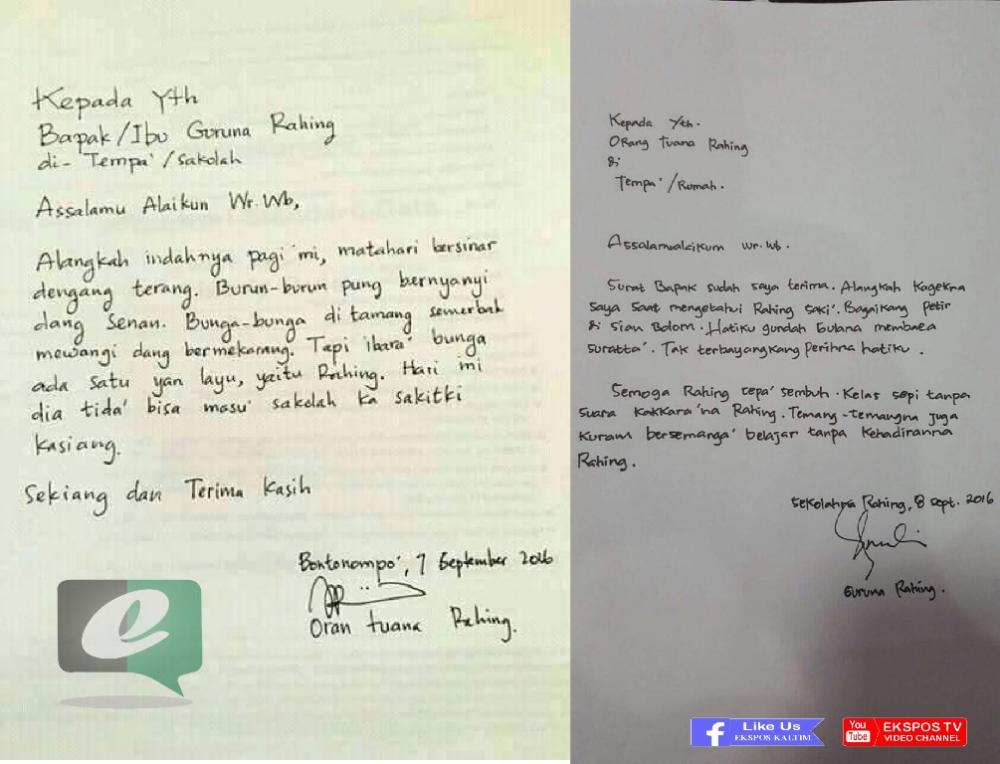 Kepada Yth
Bapak/Ibu Guruna Rahing
di- Tempa'/Sakolah
Assalamu Alaikun Wr. Wb,
Alangkah indahnya pagi mi, matahari bersinar
dengang terang. Burun-burun pung bernyanyi
dang Senan. Bunga-bunga di tamang semerbak
mewangi dang bermekarang. Tapi ibara' bunga
ada satu yan layu, yaitu Rahing. Hari mi
dia tida' bisa masu' sakolah ka sakitki
kasiang.
Sekiang dan Terima Kasih
Bontonompo', 7 September 2016
Oran tuana Rahing.
e
Kepada Yth.
Orang tuana Rahing
di
Tempa'/Rumah.
Assalamualaikum wr. wb.
Surat Bapak sudah saya terima. Alangkah Kagekna
saya saat mengetahui Rahing saki'. Bagaikang petir
di Sian Bolom. Hatiku gundah gulana membaca
suratta'. Tak terbayangkang perihna hatiku.
Semoga Rahing cepa' sembuh. Kelas sepi tanpa
suara kakkara'na Rahing. Temang-temangna juga
kuram bersemanga' belajar tanpa Kehadiranna
Rahing.
Sekolahna Rahing, 8 Sept. 2016
Guruna Rahing.
f Like Us
EKSPOS KALTIM
You Tube EKSPOS TV
VIDEO CHANNEL